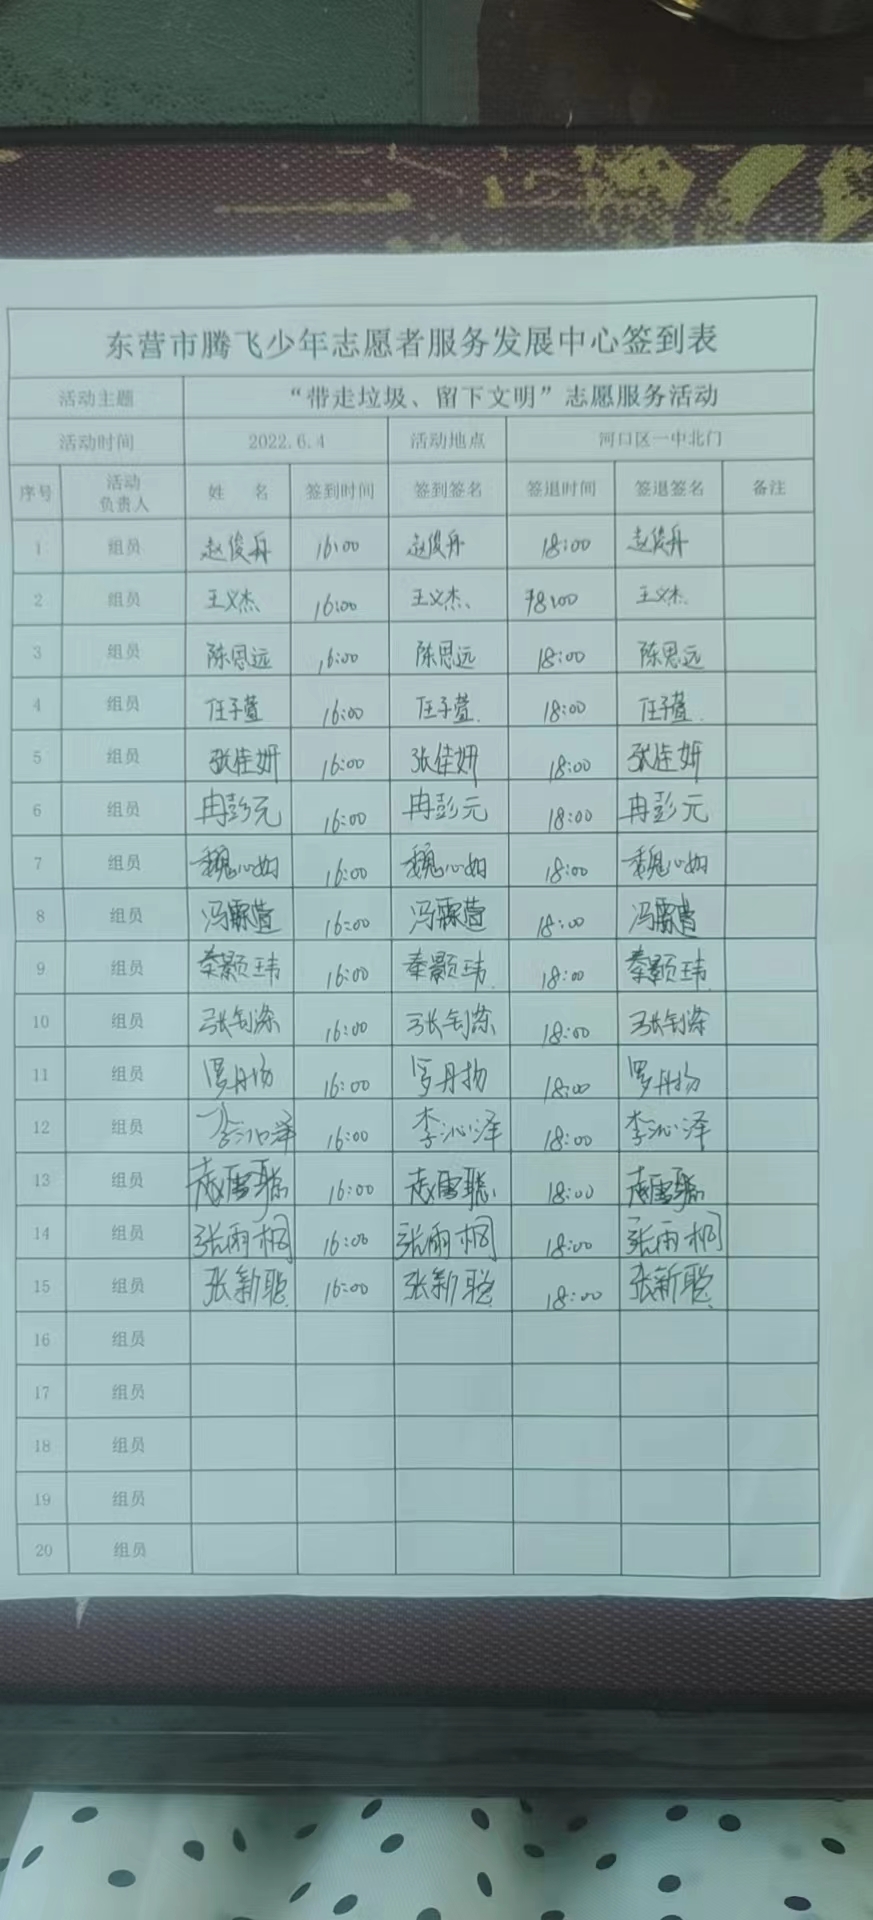 东营市腾飞少年志愿者服务发展中心签到表
活动主题 “带走垃圾、留下文明”志愿服务活动
活动时间 2022.6.4 活动地点 河口区一中北门
序号 活动负责人 姓 名 签到时间 签到签名 签退时间 签退签名 备注
1 组员 赵俊舟 16:00 赵俊舟 18:00 赵俊舟
2 组员 王义杰 16:00 王义杰 18:00 王义杰
3 组员 陈思远 16:00 陈思远 18:00 陈思远
4 组员 任子萱 16:00 任子萱 18:00 任子萱
5 组员 张佳妍 16:00 张佳妍 18:00 张佳妍
6 组员 冉彭元 16:00 冉彭元 18:00 冉彭元
7 组员 魏心如 16:00 魏心如 18:00 魏心如
8 组员 冯霖萱 16:00 冯霖萱 18:00 冯霖萱
9 组员 秦颢玮 16:00 秦颢玮 18:00 秦颢玮
10 组员 16:00 18:00
11 组员 罗丹扬 16:00 罗丹扬 18:00 罗丹扬
12 组员 李沁泽 16:00 李沁泽 18:00 李沁泽
13 组员 16:00 18:00
14 组员 张雨桐 16:00 张雨桐 18:00 张雨桐
15 组员 张新聪 16:00 张新聪 18:00 张新聪
16 组员
17 组员
18 组员
19 组员
20 组员